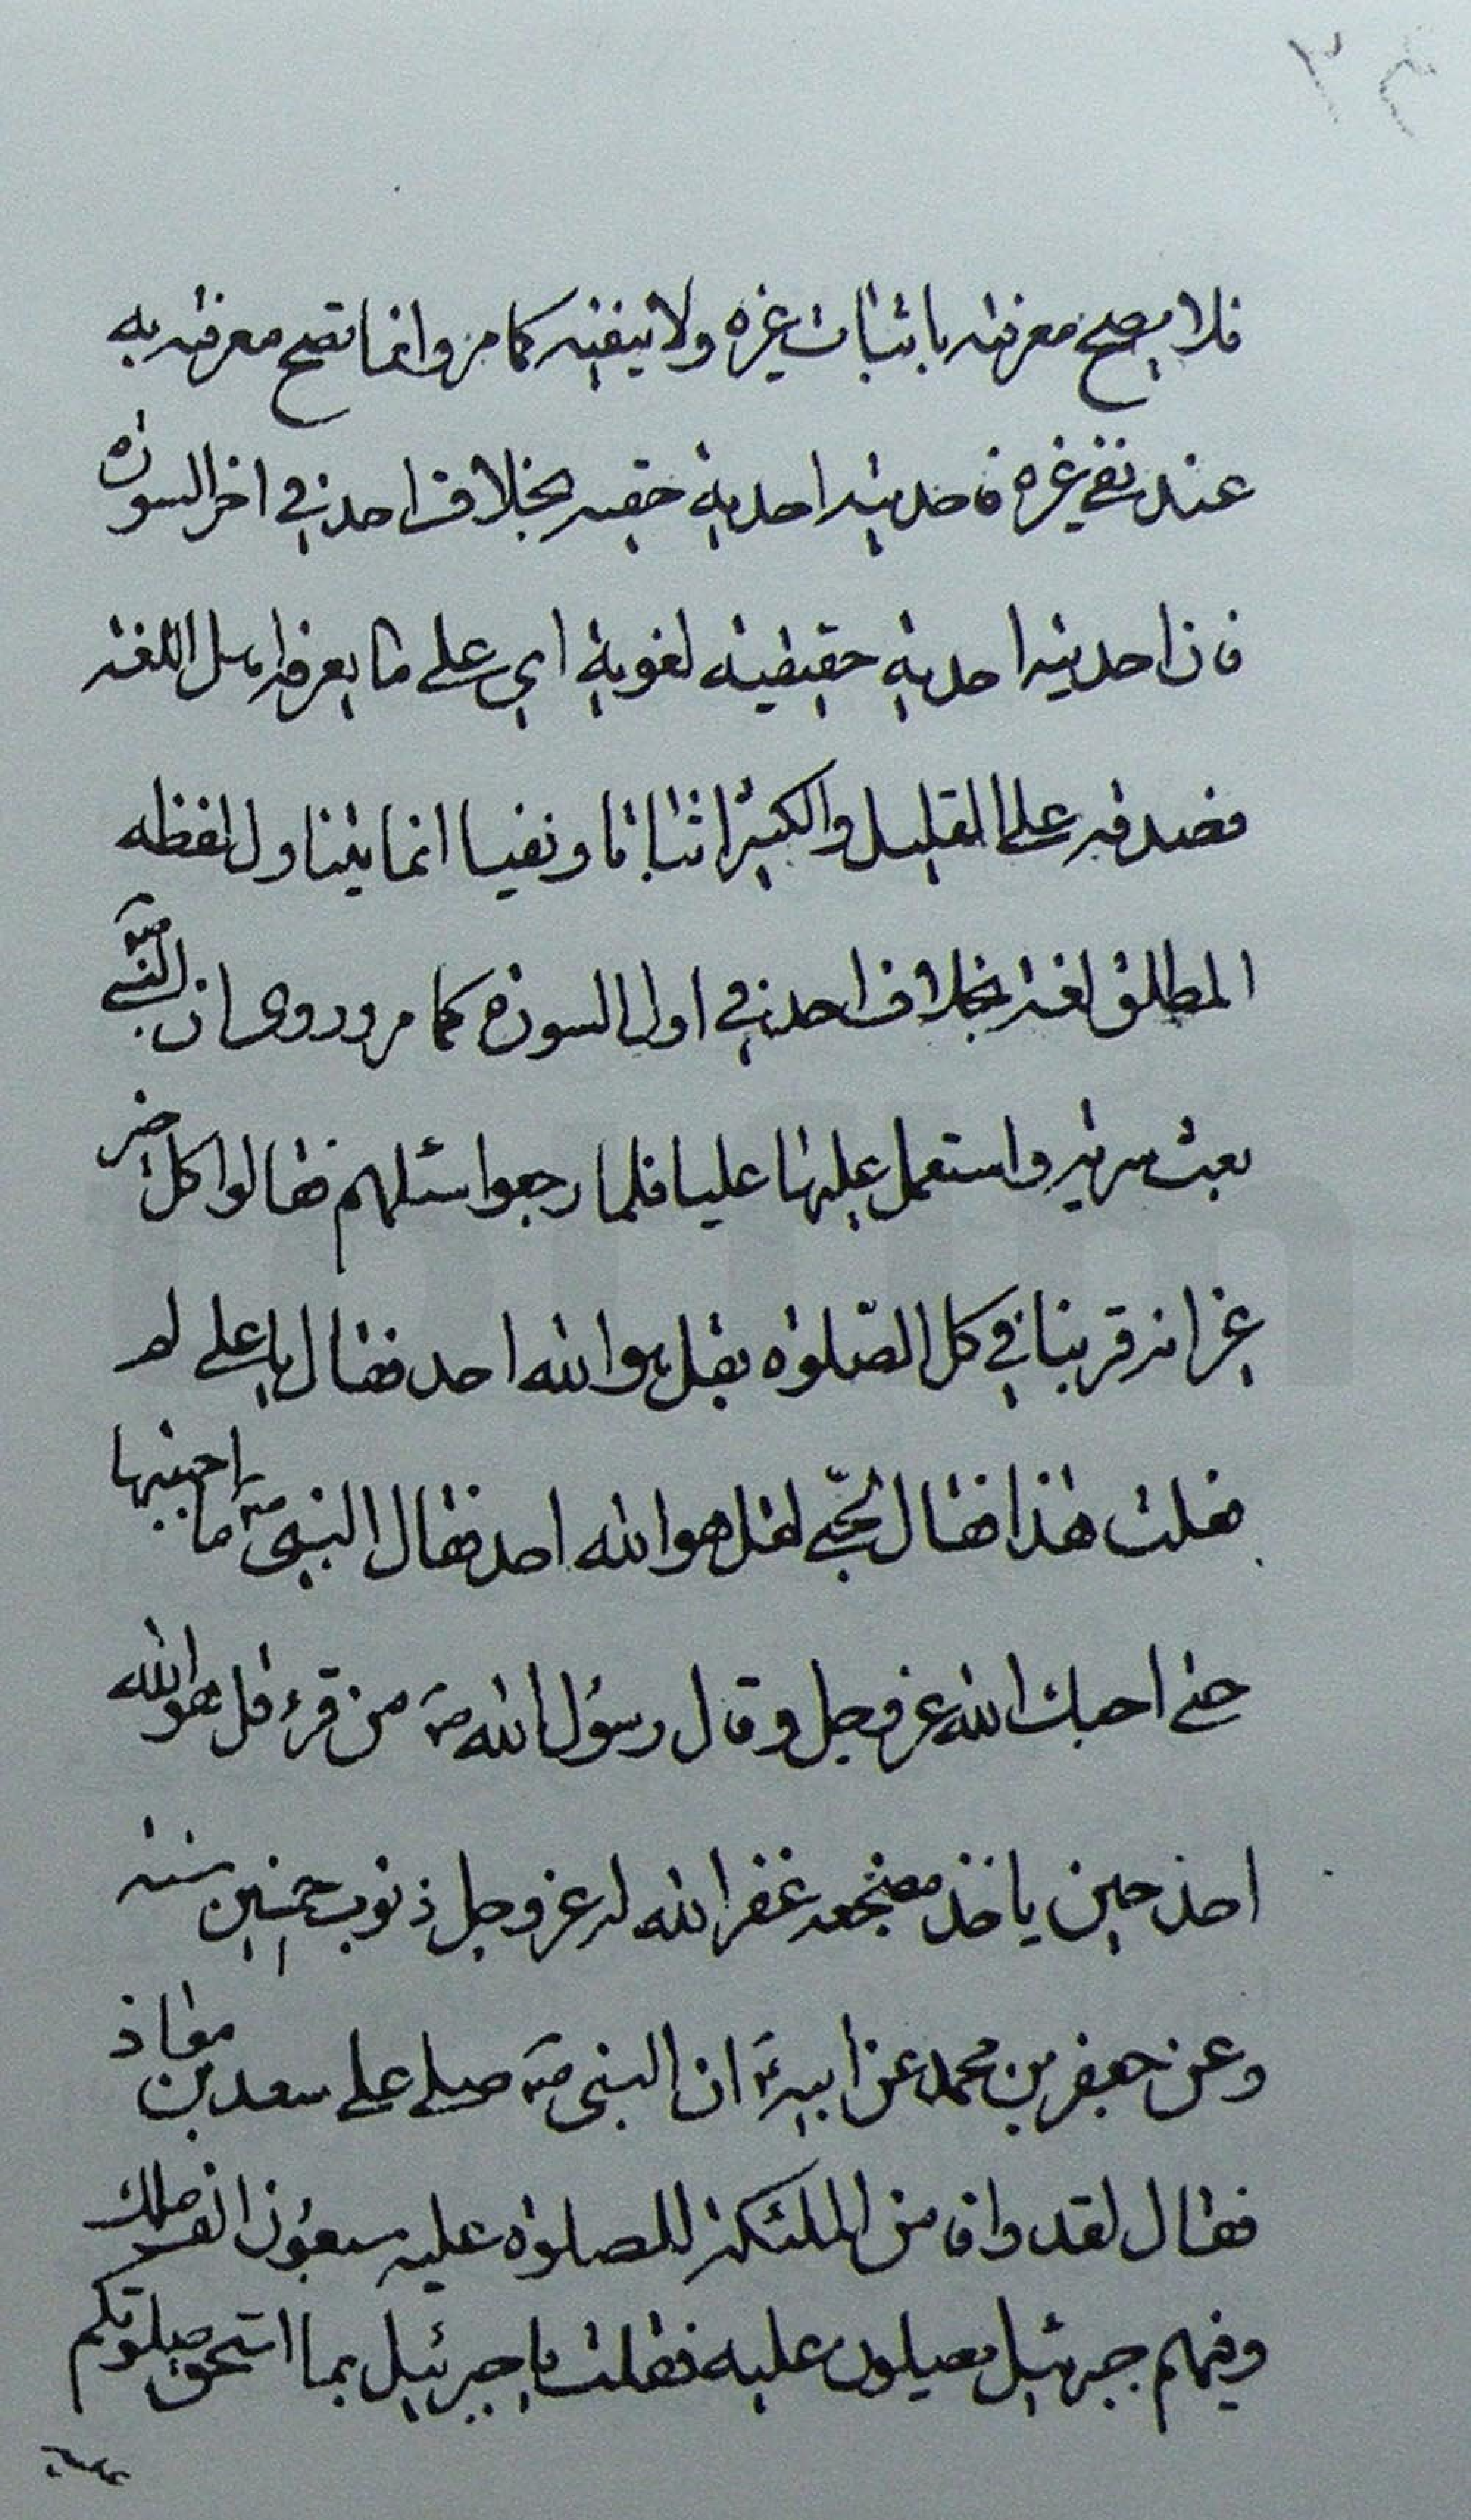 فلا يصح معرفته باثبات غيره ولا بنفيه كما مر وانما تصح معرفته به
عند نفي غيره فاحديته احدية حقيه بخلاف احد في اخر السورة
فان احديته احدية حقيقية لغوية اي على ما يعرفه اهل اللغة
فصدقه على القليل والكثير اثباتا ونفيا انما يتناول لفظه
المطلق لغة بخلاف احد في اول السورة كما مر وروى ان النبي ص
بعث سرية واستعمل عليها عليا فلما رجعوا سئلهم فقالوا كل خير
غير انه قرء بنا في كل الصلوة بقل هو الله احد فقال يا علي لم
فعلت هذا فقال لحبي لقل هو الله احد فقال النبي ص ما احببتها
حتى احبك الله عز وجل وقال رسول الله ص من قرء قل هو الله
احد حين ياخذ مضجعه غفر الله له عز وجل ذنوب خمسين سنة
وعن جعفر بن محمد عن ابيه ع ان النبي ص صلى على سعد بن معاذ
فقال لقد وافا من الملئكة للصلوة عليه سبعون الف ملك
وفيهم جبرئيل يصلون عليه فقلت يا جبرئيل بما استحق صلوتكم